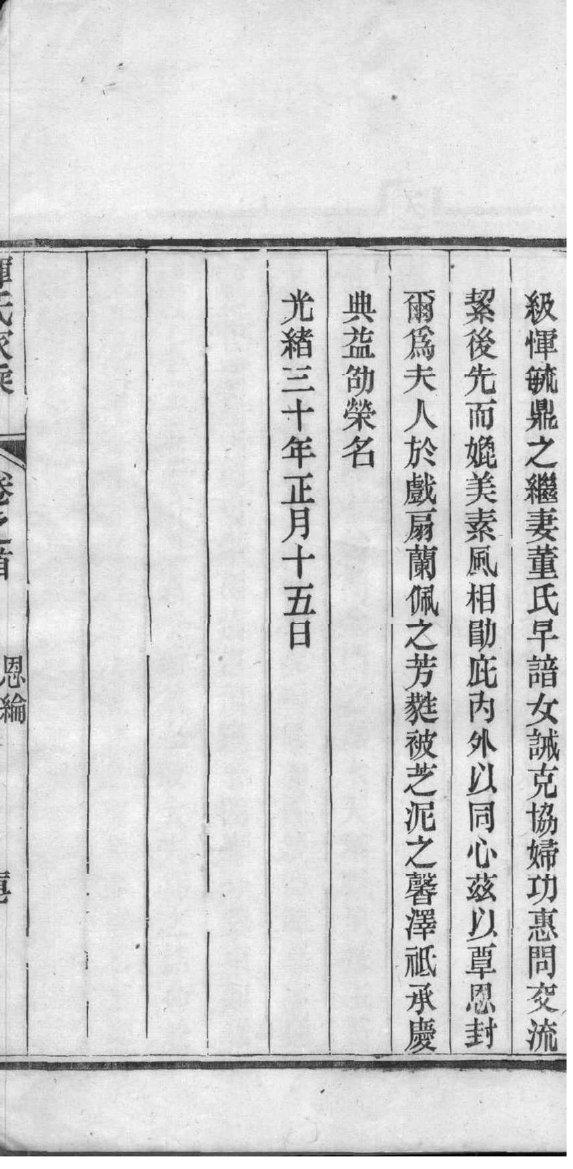 級惲毓鼎之繼妻董氏早諳女誡克協婦功惠問交流
絜後先而媲美素風相勖庇内外以同心茲以覃恩封
爾爲夫人於戲扇蘭佩之芳蕤被芝泥之馨澤祗承慶
典益劭榮名
光緒三十年正月十五日
惲氏家乘 卷之首 恩綸